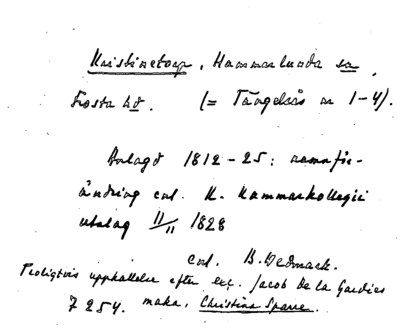 Kristinetorp, Hammarlunda sn,
Frosta hd. (= Tångelsås nr 1-4).
Anlagd 1812-25; namnför-
ändring enl. K. Kammarkollegii
utslag 11/11 1828
enl. B. Hedmark.
Troligtvis uppkallelse efter exc. Jacob De la Gardies
maka, Christina Sparre.
7254.